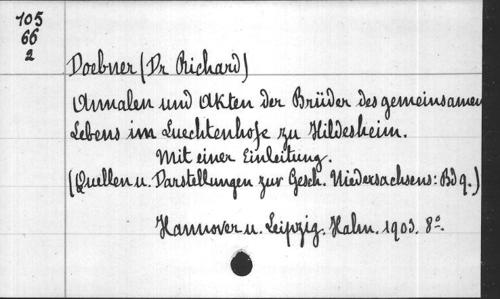 105
66
2
Doebner (Dr Richard)
Annalen und Akten der Brüder des gemeinsamen
Lebens im Luechtenhofe zu Hildesheim.
Mit einer Einleitung.
(Quellen u. Darstellungen zur Gesch. Niedersachsens: Bd 9.)
Hannover u. Leipzig. Hahn. 1903. 8º.